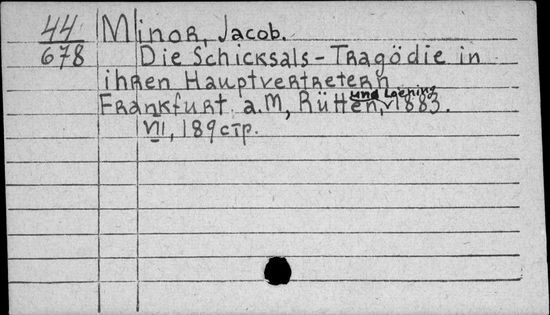 44 Minor, Jacob.
678 Die Schicksals-Tragödie in
ihren Hauptvertretern
Frankfurt a.M, Rütten und Loening, 1883.
VII, 189 стр.